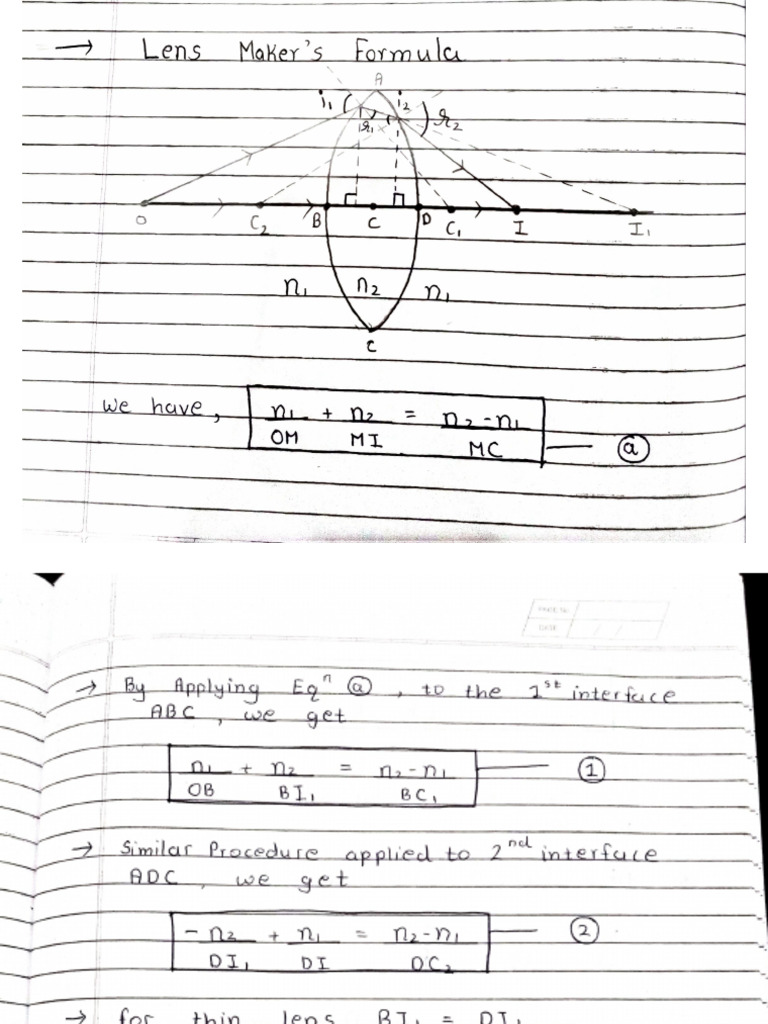 → Lens Maker's Formula
A
i₁ i₂
r₁ r₂
O C₂ B C D C₁ I I₁
n₁ n₂ n₁
C
we have, n₁/OM + n₂/MI = n₂-n₁/MC — ⓐ
PAGE No.
DATE
→ By Applying Eqⁿ ⓐ, to the 1ˢᵗ interface
ABC, we get
n₁/OB + n₂/BI₁ = n₂-n₁/BC₁ — ①
→ Similar Procedure applied to 2ⁿᵈ interface
ADC, we get
-n₂/DI₁ + n₁/DI = n₂-n₁/DC₂ — ②
→ for thin lens BI₁ = DI₁